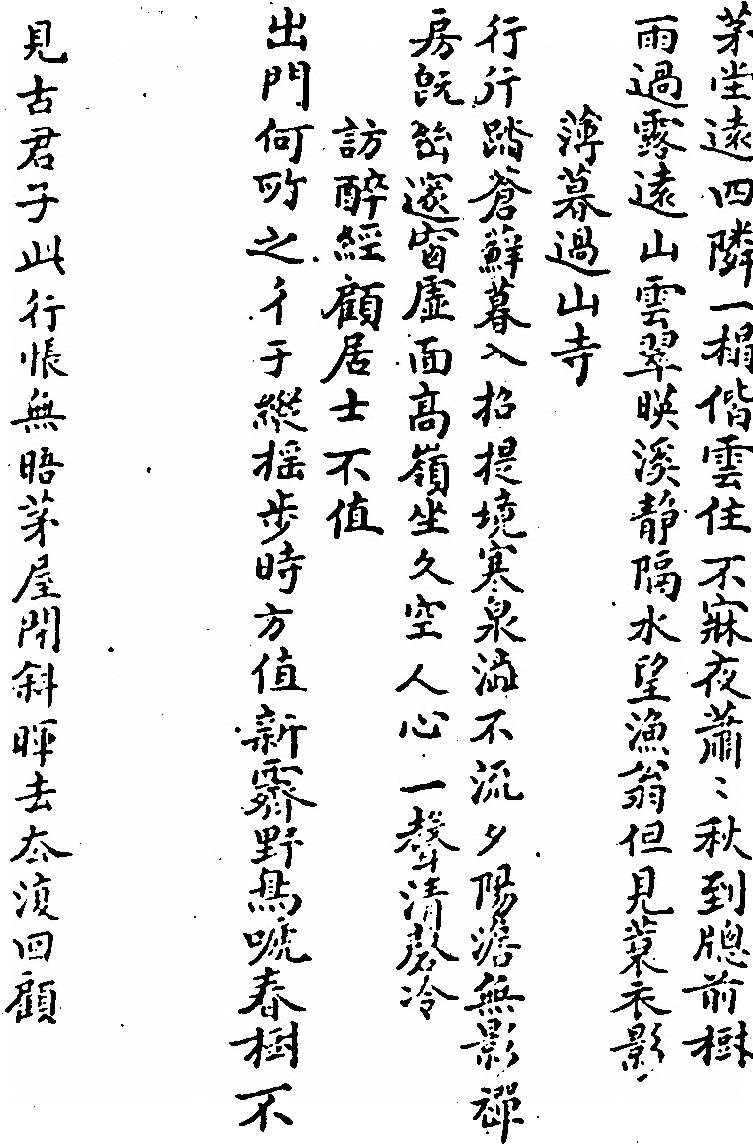 茅堂遠四隣一榻偕雲住不寐夜蕭〻秋到牎前樹
雨過露遠山雲翠暎溪靜隔水望漁翁但見蓑衣影
薄暮過山寺
行行踏蒼蘚暮入招提境寒泉澁不流夕陽澹無影禪
房既幽邃窗虛面高嶺坐久空人心一聲清磬冷
訪醉經顧居士不值
出門何所之彳亍縱揺步時方值新霽野鳥啼春樹不
見古君子此行悵無晤茅屋閉斜暉去去復回顧